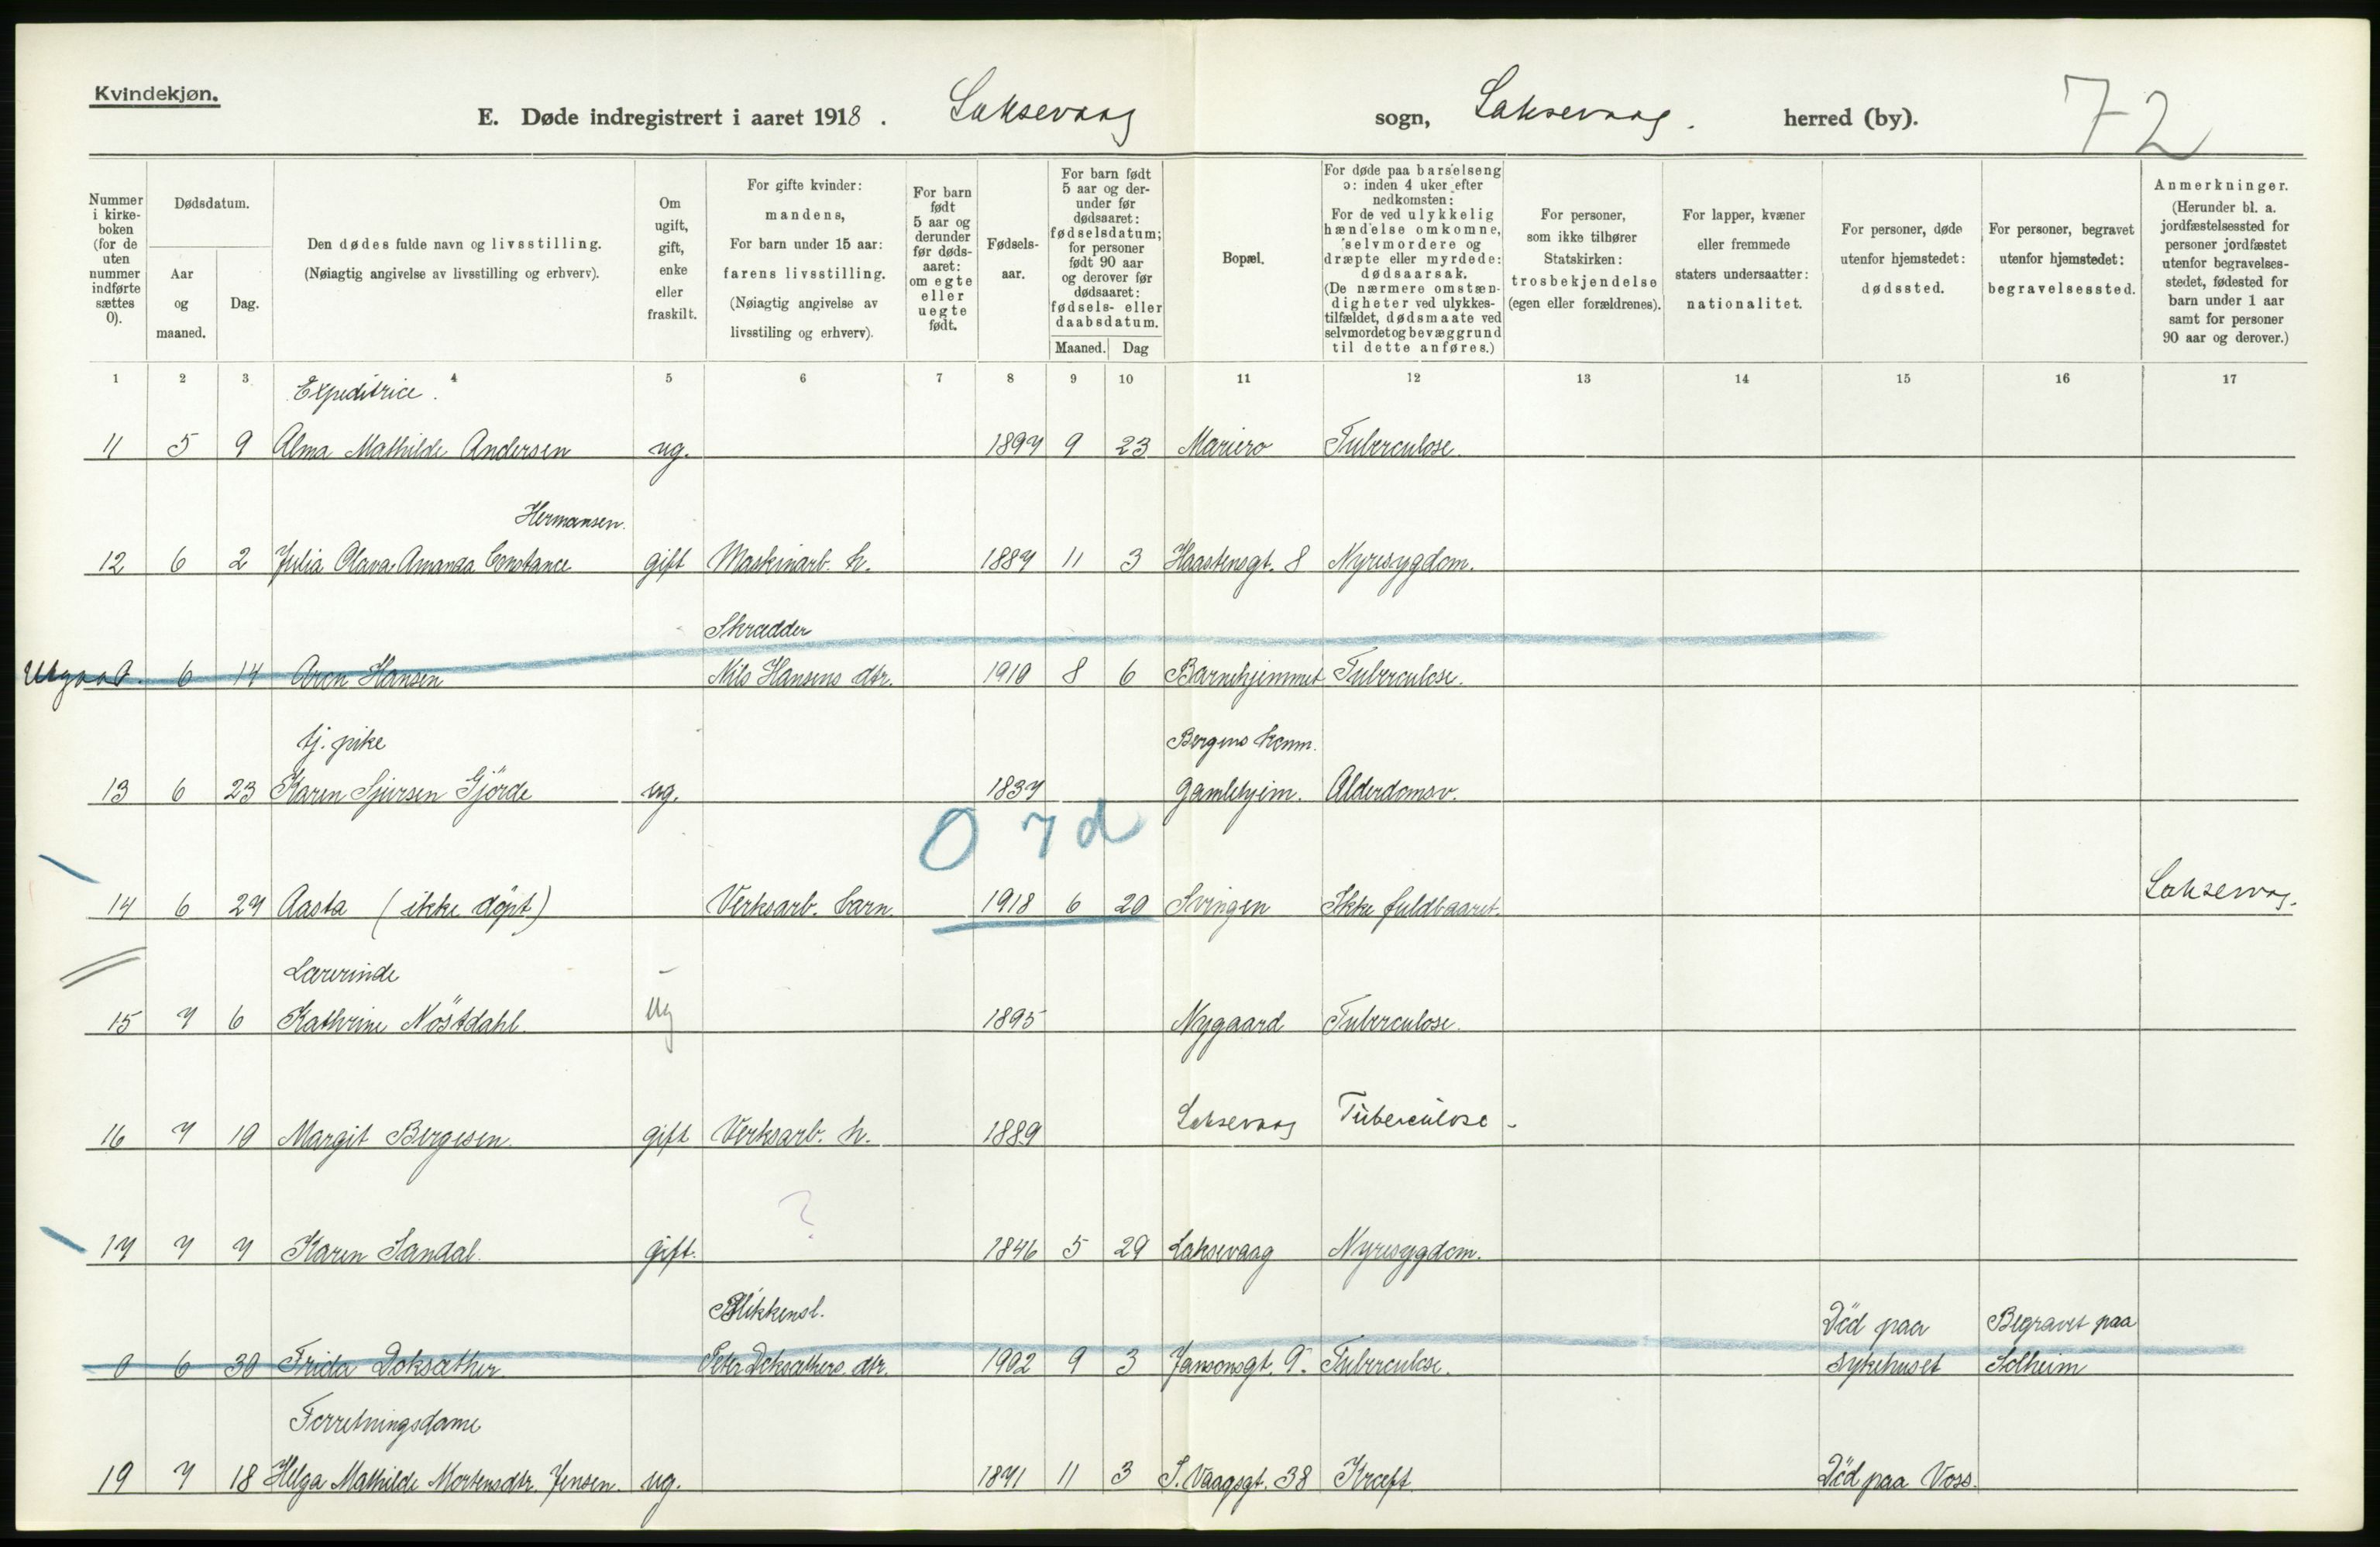 Kvindekjøn.
E. Døde indregistrert i aaret 1918. Laksevaag sogn, Laksevaag. herred (by). 72
Nummer i kirke-boken (for de uten nummer indførte sættes 0).
Dødsdatum.
Aar og maaned.
Dag.
Den dødes fulde navn og livsstilling.
(Nøiagtig angivelse av livsstilling og erhverv).
Om ugift, gift, enke eller fraskilt.
For gifte kvinder: mandens,
For barn under 15 aar: farens livsstilling.
(Nøiagtig angivelse av livsstiling og erhverv).
For barn født 5 aar og derunder før døds-aaret: om egte eller uegte født.
Fødsels-aar.
For barn født 5 aar og der-under før dødsaaret: fødselsdatum; for personer født 90 aar og derover før dødsaaret: fødsels- eller daabsdatum.
Maaned. Dag
Bopæl.
For døde paa barselseng ɔ: inden 4 uker efter nedkomsten:
For de ved ulykkelig hændelse omkomne, selvmordere og dræpte eller myrdede: dødsaarsak.
(De nærmere omstæn-digheter ved ulykkes-tilfældet, dødsmaate ved selvmordet og bevæggrund til dette anføres.)
For personer, som ikke tilhører Statskirken: trosbekjendelse (egen eller forældrenes).
For lapper, kvæner eller fremmede staters undersaatter: nationalitet.
For personer, døde utenfor hjemstedet: dødssted.
For personer, begravet utenfor hjemstedet: begravelsessted.
Anmerkninger.
(Herunder bl. a. jordfæstelsessted for personer jordfæstet utenfor begravelses-stedet, fødested for barn under 1 aar samt for personer 90 aar og derover.)
1 2 3 4 5 6 7 8 9 10 11 12 13 14 15 16 17
Expeditrice.
11 5 9 Alma Mathilde Andersen ug. 1897 9 23 Mariero Tuberculose.
Hermansen.
12 6 2 Julia Olava Amanda Constance gift Maskinarb. h. 1887 11 3 Haastensgt. 8 Nyresygdom.
Skrædder
Utgaar. 6 14 Aron Hansen Nils Hansens dtr. 1910 8 6 Barnehjemmet Tuberculose.
tj. pike Bergens Komm.
13 6 23 Karen Sjursen Gjörde ug. 1837 Gamlehjem. Alderdomsv.
0 7 d
14 6 27 Aasta (ikke døpt) Verksarb. barn. 1918 6 20 Svingen Ikke fuldbaaret. Laksevaag.
Lærerinde
15 7 6 Kathrine Nöstdahl ug 1895 Nygaard Tuberculose.
16 7 10 Margit Bergesen gift Verksarb. h. 1889 Laksevaag Tuberculose -
?
17 7 7 Karen Sandal. gift. 1846 5 29 Laksevaag Nyresygdom.
Blikkensl. Död paa Begravet paa
0 6 30 Frida Doksæther. Peter Doksæthers dtr. 1902 9 3 Jansonsgt. 9. Tuberculose. sykehuset Solheim
Forretningsdame
19 7 18 Helga Mathilde Mortensdtr. Jensen. ug. 1871 11 3 S. Vaagsgt. 38 Kræft Död paa Voss.